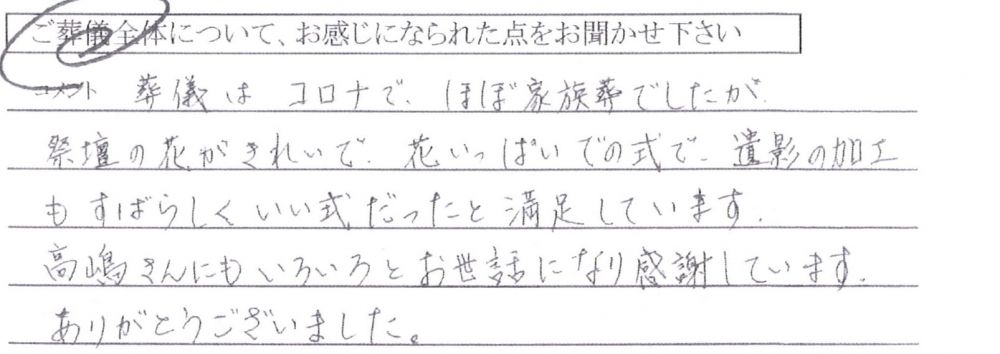 ご葬儀全体について、お感じになられた点をお聞かせ下さい
コメント 葬儀は コロナで、ほぼ家族葬でしたが、
祭壇の花がきれいで、花いっぱいでの式で、遺影の加工
もすばらしくいい式だったと満足しています。
高嶋さんにもいろいろとお世話になり感謝しています。
ありがとうございました。